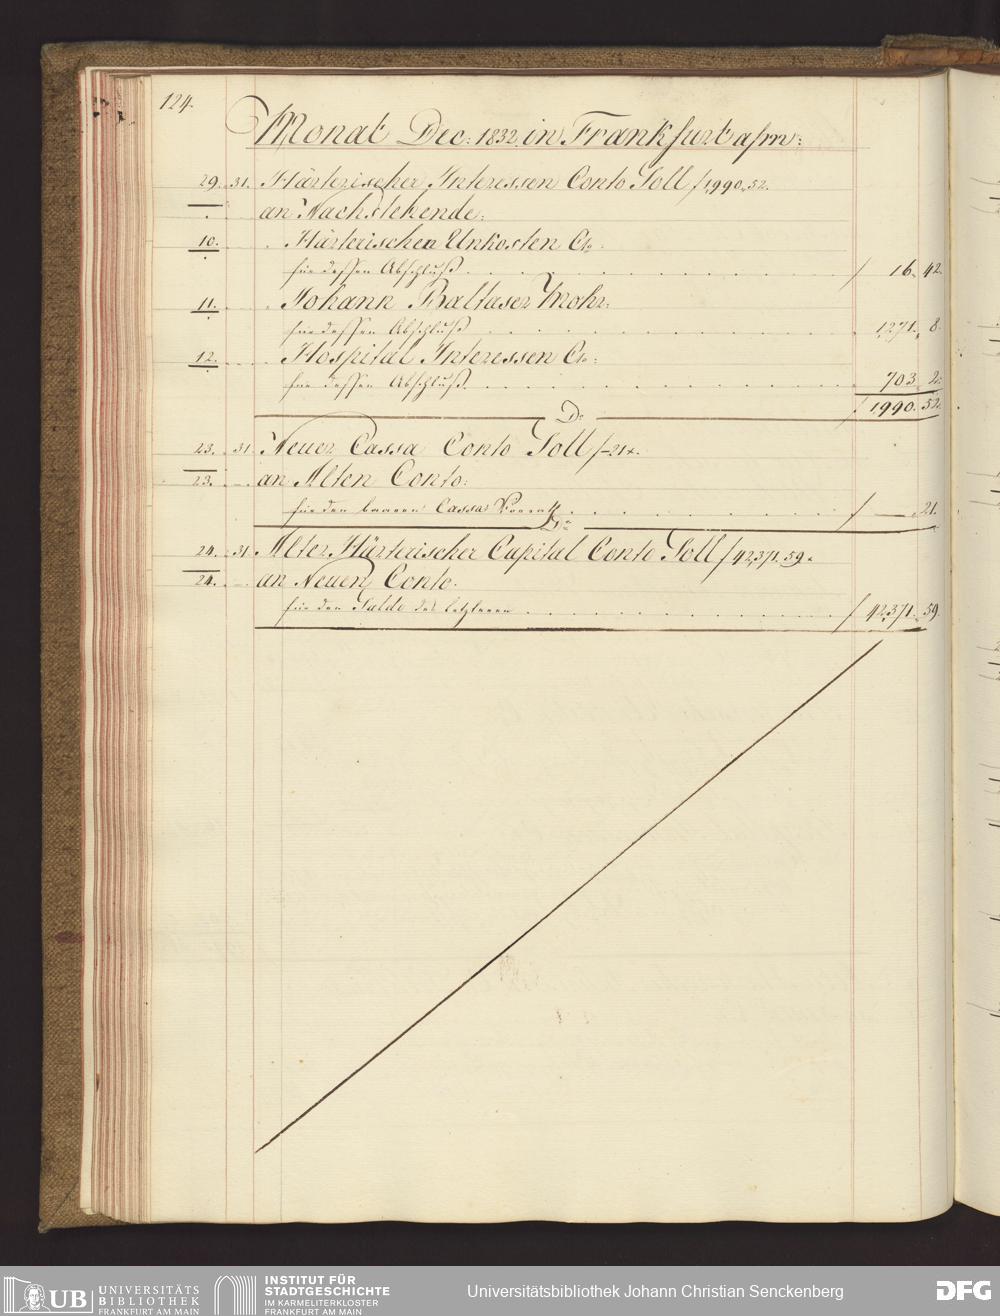 124.
Monat Dec: 1832. in Frankfurt a/m:
29. 31. Härterischer Interessen Conto Soll f 1,990. 52.
an Nachstehende:
10. Härterischen Unkosten Cto:
für dessen Abschluß f 16. 42.
11. Johann Baltaser Mohr:
für dessen Abschluß 1,271. 8.
12. Hospital Interessen Cto:
für dessen Abschluß 703. 2.
f 1990. 52.
Do
23. 31. Neuer Cassa Conto Soll f —21x.
23. an Alten Conto:
für den baaren Cassa Vorrath f — 21.
Do
24. 31. Alter Härterischer Capital Conto Soll f 42,371. 59.
24. an Neuen Conto.
für den Saldo des letzteren f 42,371. 59.
UB UNIVERSITÄTS BIBLIOTHEK FRANKFURT AM MAIN
INSTITUT FÜR STADTGESCHICHTE IM KARMELITERKLOSTER FRANKFURT AM MAIN
Universitätsbibliothek Johann Christian Senckenberg
DFG